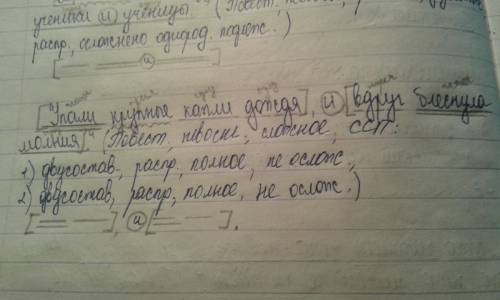 ученики и ученицы. (Повест.,
распр., осложнено однород. подлеж.)
[ и ]
[Упали крупные капли дождя] и [вдруг блеснула
молния]. (Повест., невоскл., сложное, ССП:
1) двусостав., распр., полное, не ослож.,
2) двусостав., распр., полное, не ослож.)
[ ], и [ ].